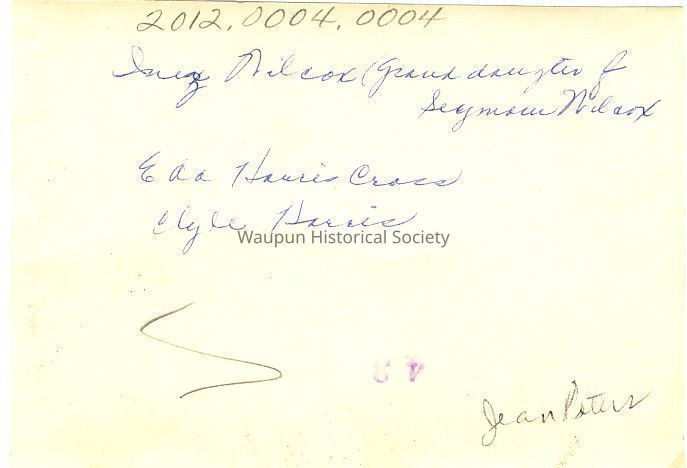 2012.0004.0004
Inez Wilcox (Grand daughter of
Seymour Wilcox
Eda Harris Cross
Clyde Harris
Waupun Historical Society
4 3
Jean Peters